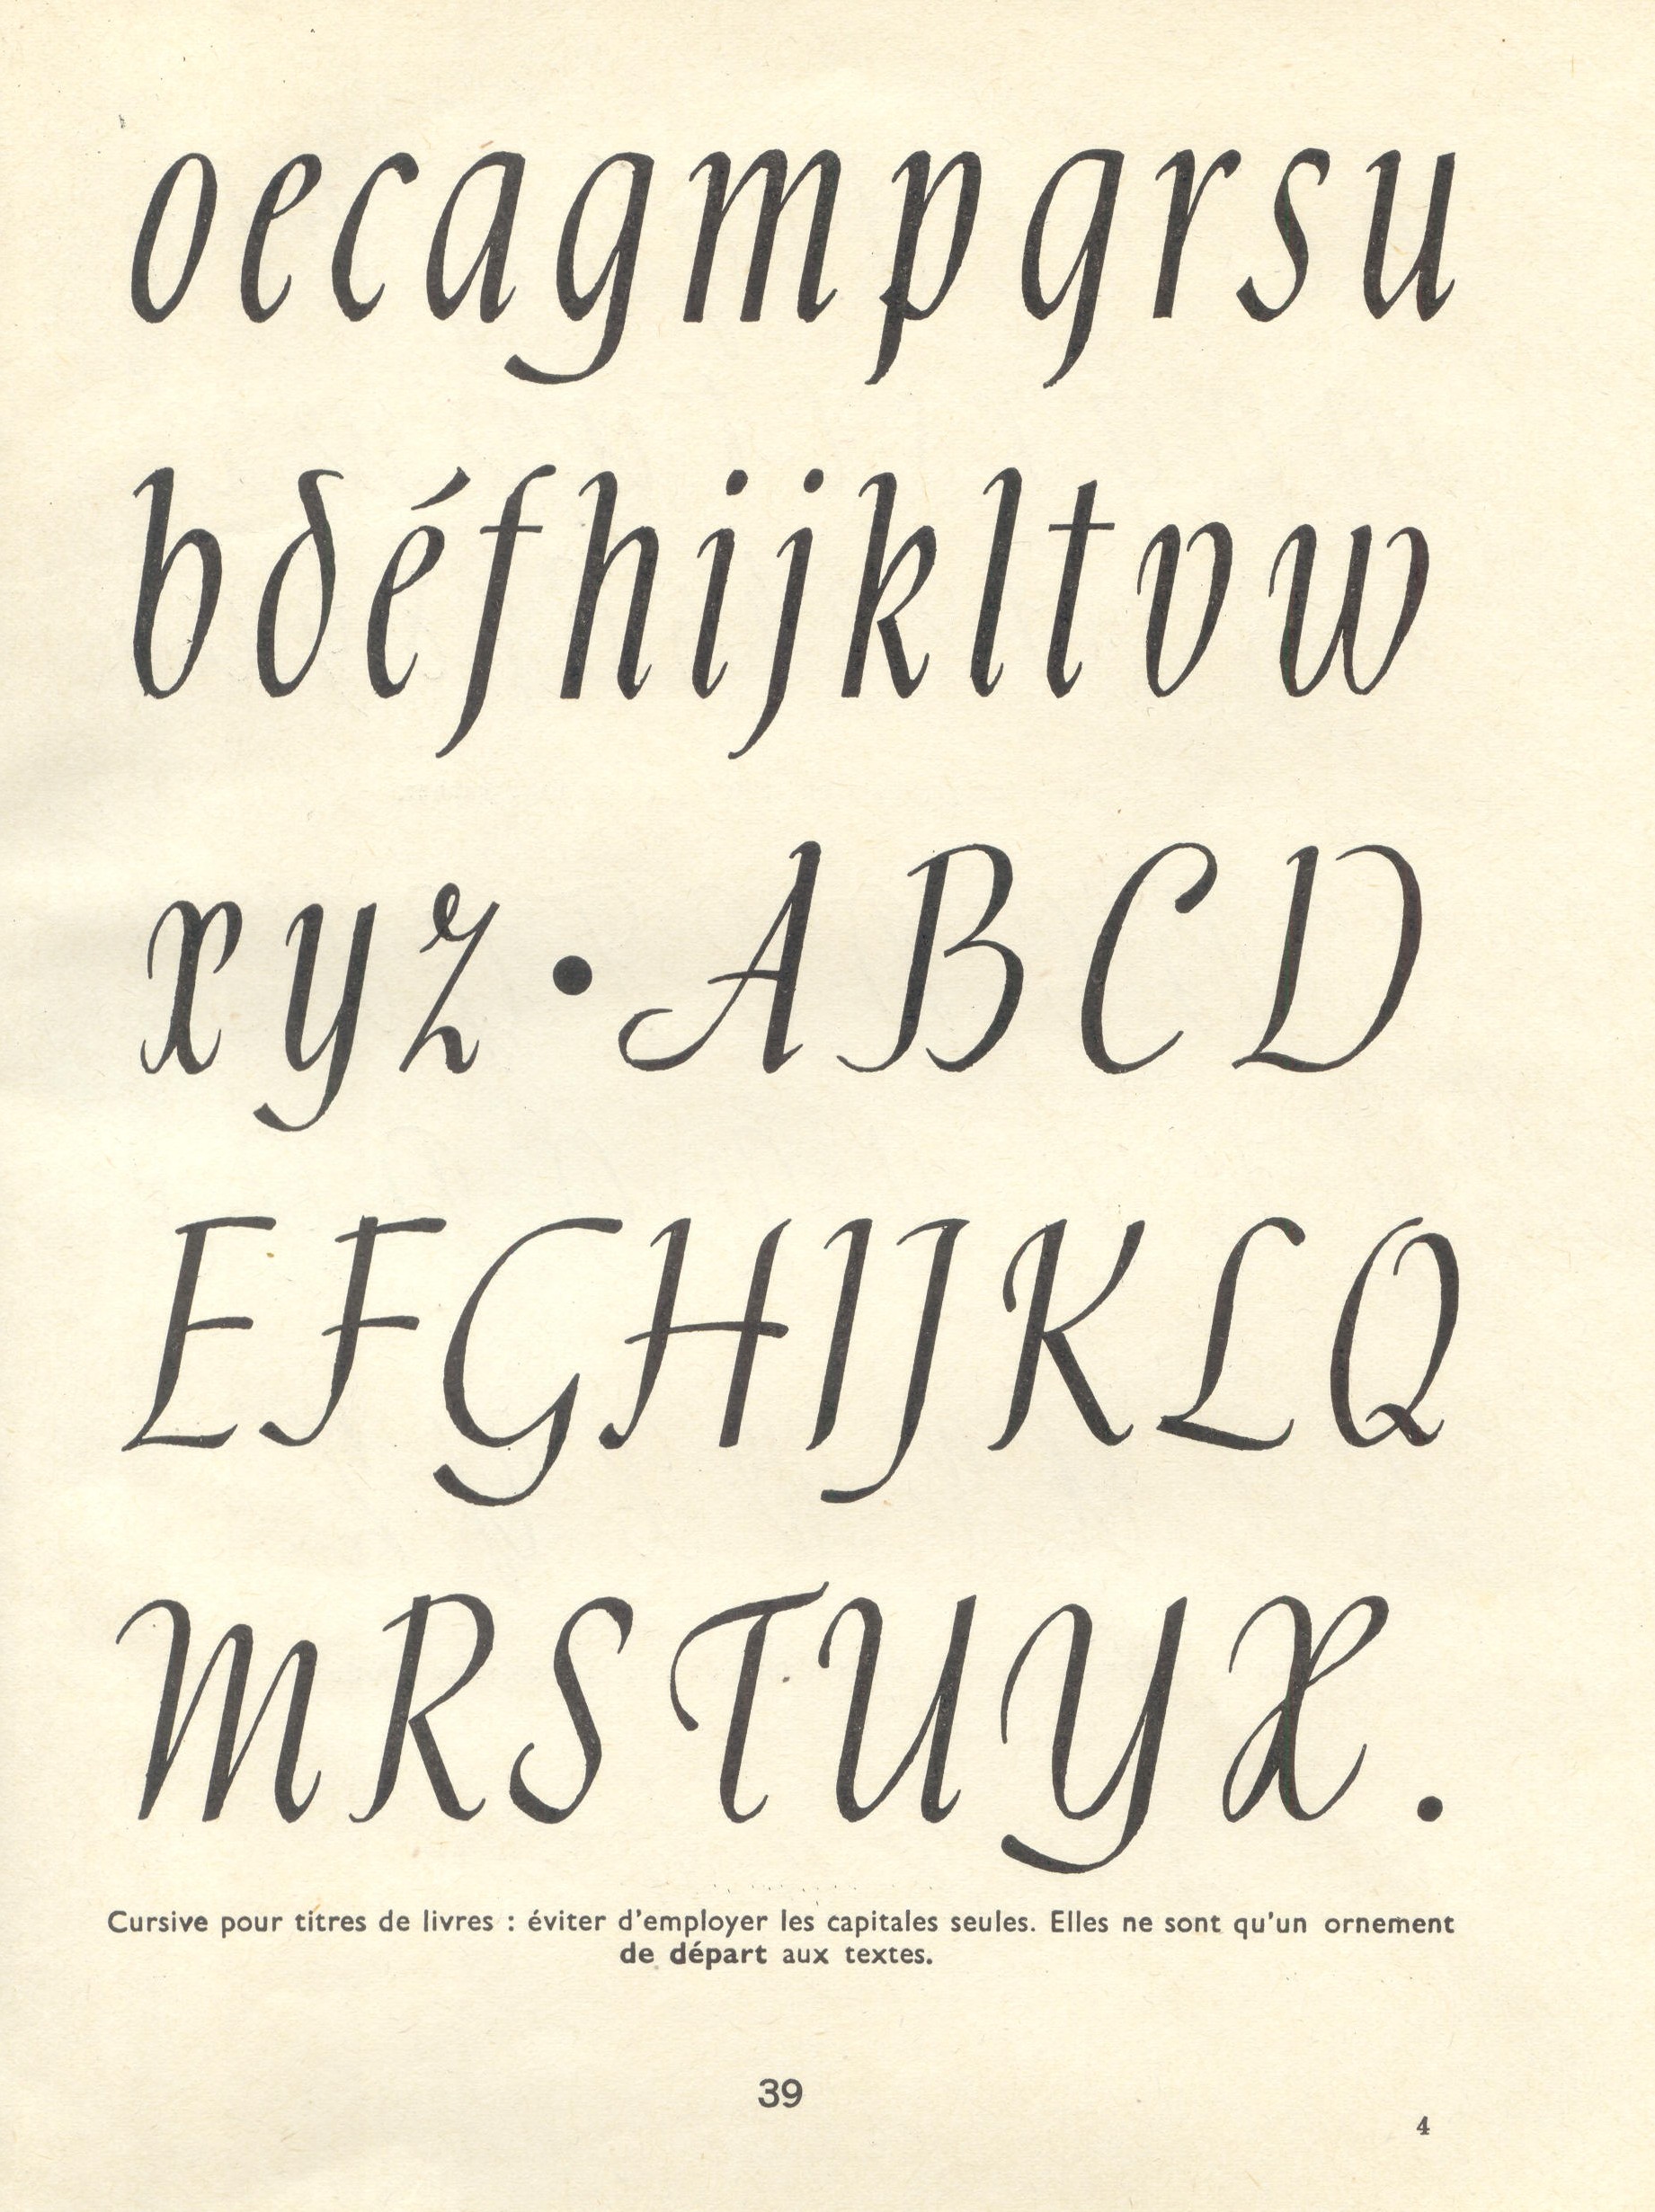 oecagmpqrsu
bdéfhijkltvw
xyz • ABCD
EFGHIJKLQ
MRSTUYX.
Cursive pour titres de livres : éviter d'employer les capitales seules. Elles ne sont qu'un ornement
de départ aux textes.
39
4